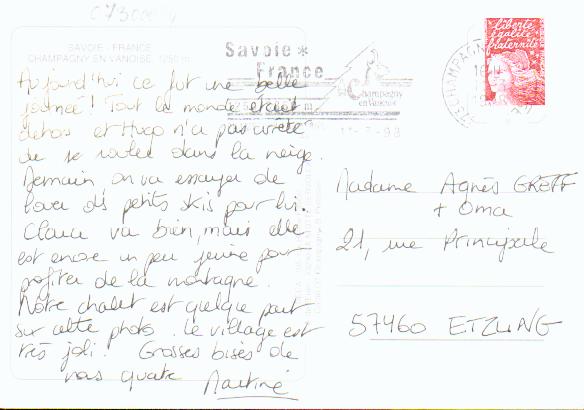 073000
SAVOIE - FRANCE
CHAMPAGNY EN VANOISE 1250 m
Savoie *
France
Champagny
en Vanoise
11-3-98
liberté
égalité
fraternité
Aujourd'hui ce fut une belle
journée ! Tout le monde était
dehors et Hugo n'a pas arrêté
de se rouler dans la neige.
Demain on va essayer de
louer des petits skis pour lui.
Clara va bien, mais elle
est encore un peu jeune pour
profiter de la montagne.
Notre chalet est quelque part
sur cette photo. Le village est
très joli. Grosses bises de
nous quatre Martine
Madame Agnès GREFF
+ Oma
21, rue Principale
57460 ETZLING